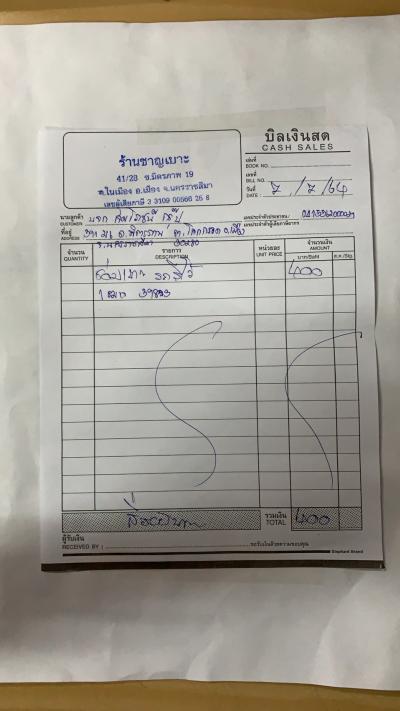 บิลเงินสด
CASH SALES
ร้านชาญเบาะ
41/28 ซ.มิตรภาพ 19
ต.ในเมือง อ.เมือง จ.นครราชสีมา
เลขผู้เสียภาษี 3 3109 00566 25 8
เล่มที่
BOOK NO.
เลขที่
BILL NO.
วันที่ 7/7/64
DATE
นามลูกค้า
CUSTOMER
เลขประจำตัวประชาชน /
เลขประจำตัวผู้เสียภาษีอากร
ที่อยู่
ADDRESS
จ.นครราชสีมา
จำนวน รายการ หน่วยละ จำนวนเงิน
QUANTITY DESCRIPTION UNIT PRICE AMOUNT
บาท/Baht ส.ต./Stg.
400
สี่ร้อยบาท รวมเงิน 400
TOTAL
ผู้รับเงิน
RECEIVED BY : ขอรับเงินด้วยความขอบคุณ
Elephant Brand